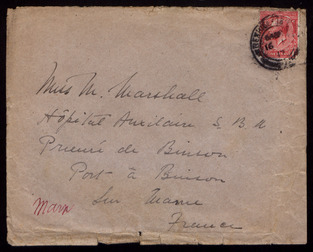 Miss M. Marshall
Hôpital Auxilaire S. B. M
Prieuré de Binson
Port à Binson
Sur Marne
France